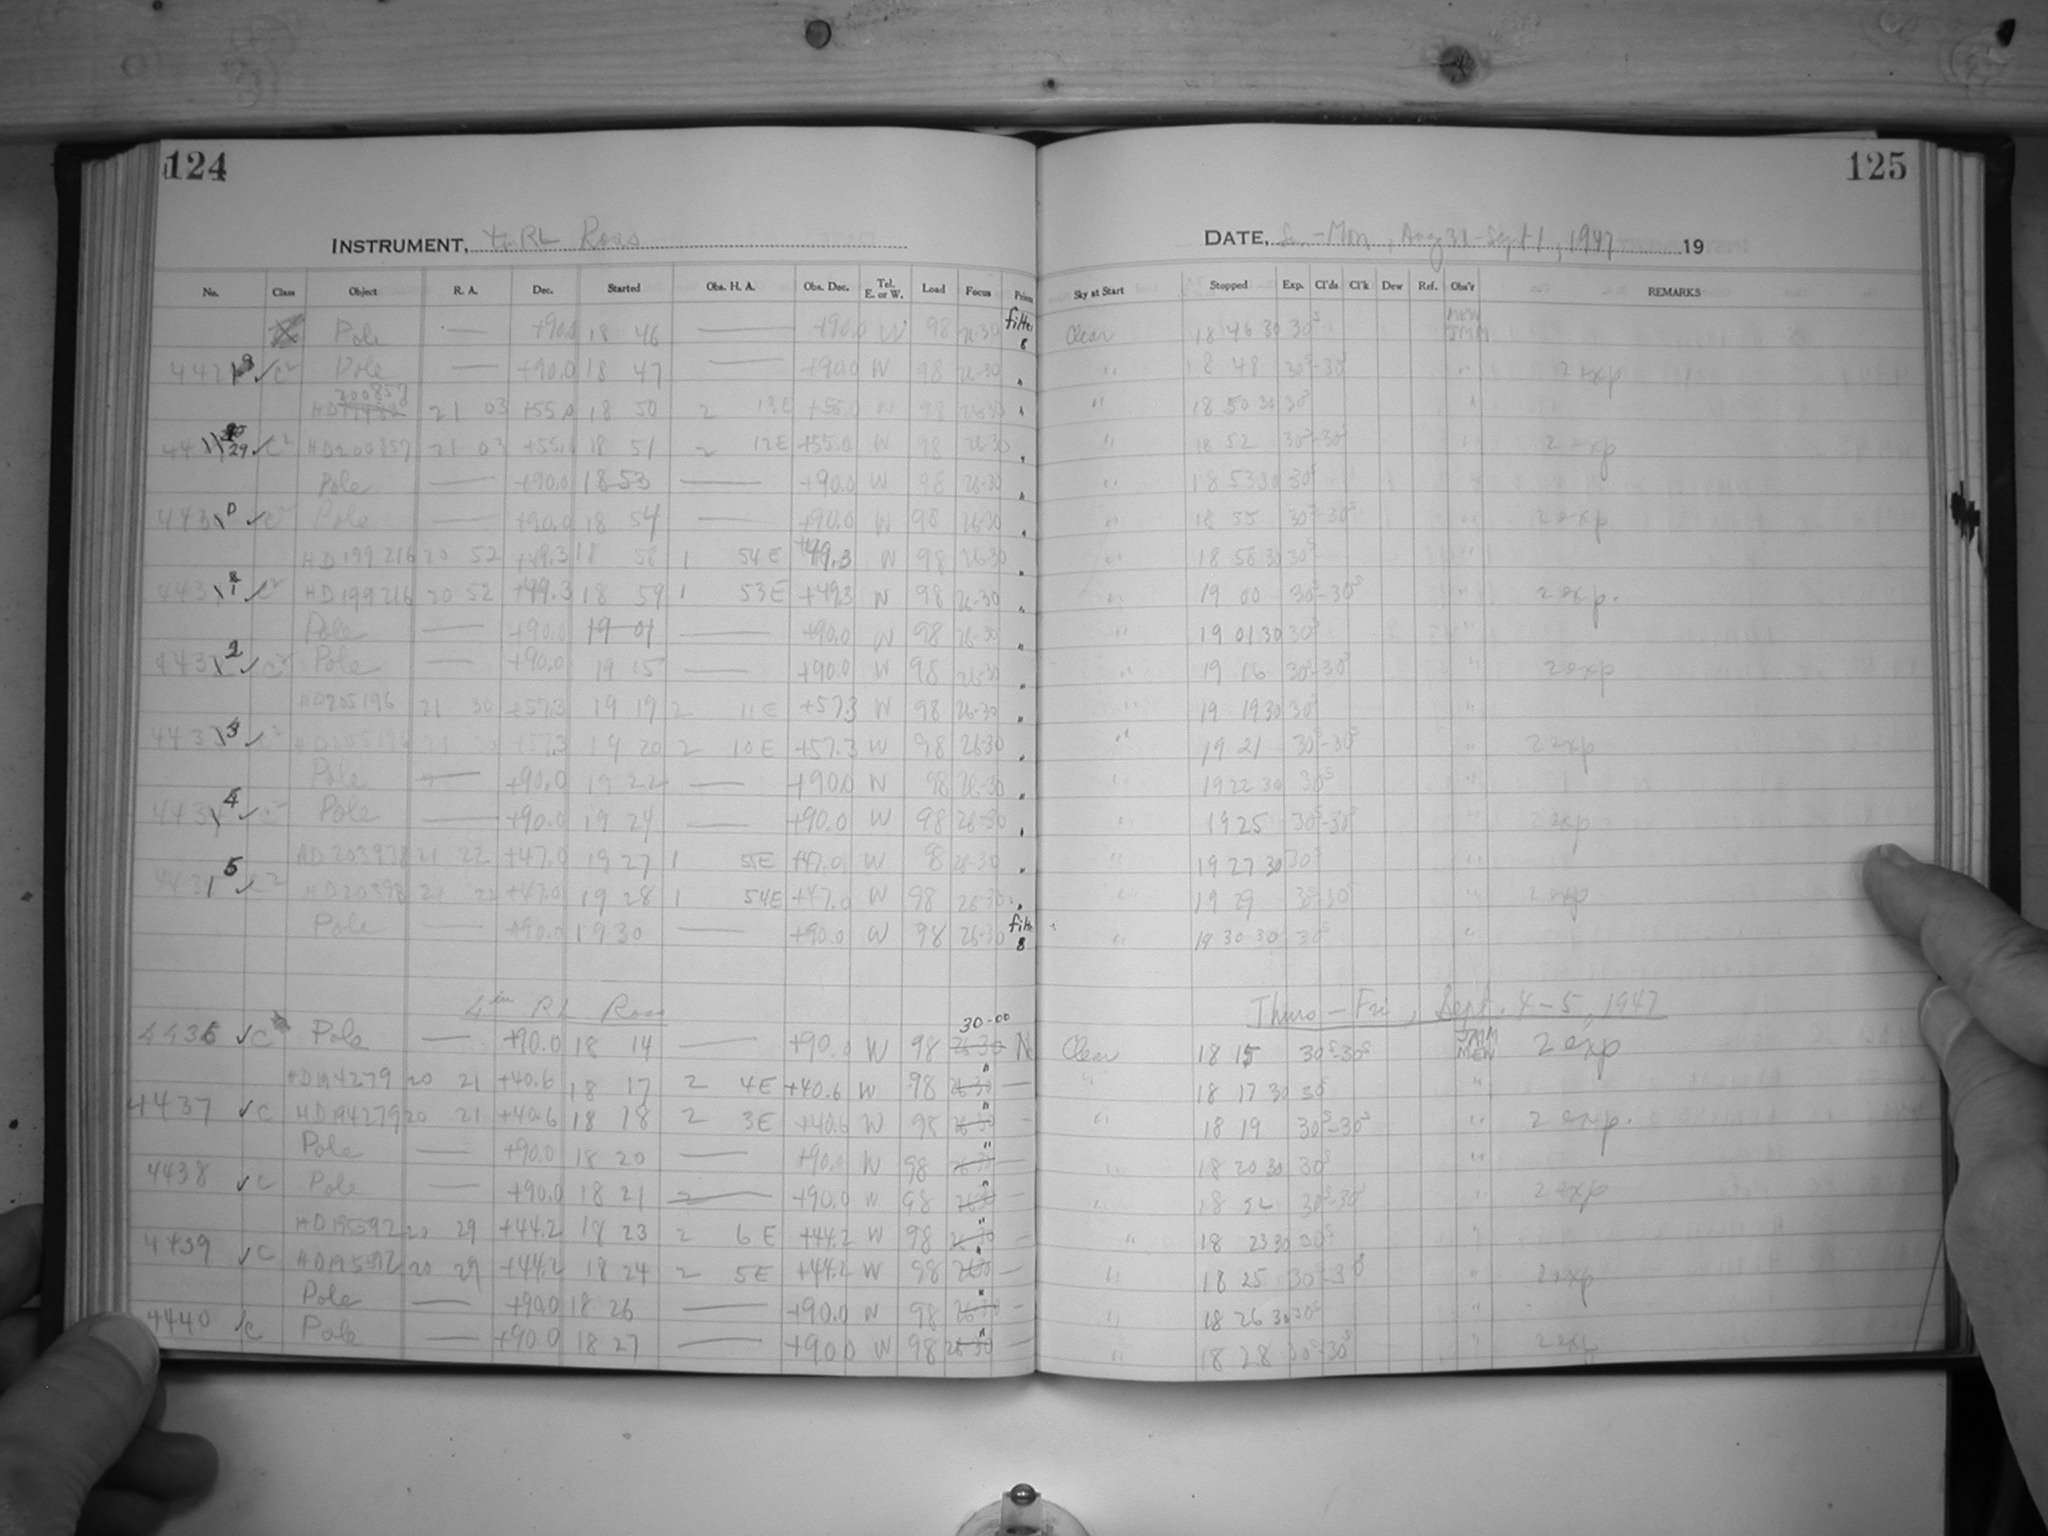 124
125
INSTRUMENT, 4in RL Ross
DATE, Su.-Mon, Aug 31-Sept 1, 1947 19
No. Class Object R. A. Dec. Started Obs. H. A. Obs. Dec. Tel. E. or W. Load Focus Prism Sky at Start Stopped Exp. Cl'ds Cl'k Dew Ref. Obs'r REMARKS
Pole — +90.0 18 46 — +90.0 W 98 26-30 filter 8 Clear 18 46 30 30s MEW JMM
Pole — +90.0 18 47 — +90.0 W 98 26-30 " " 18 48 30s-30s " 2 exp
200857 21 03 +55.0 18 50 2 13E +55.0 W 98 26-30 " " 18 50 30 30s "
29 ✓ C2 HD200857 21 03 +55.0 18 51 2 12E +55.0 W 98 26-30 " " 18 52 30s-30s " 2 exp
Pole — +90.0 18 53 — +90.0 W 98 26-30 " " 18 53 30 30s "
443 0 ✓ C2 Pole — +90.0 18 54 — +90.0 W 98 26-30 " " 18 55 30s-30s " 2 exp
HD199216 20 52 +49.3 18 58 1 54E +49.3 W 98 26-30 " " 18 58 30 30s "
443 1 ✓ C2 HD199216 20 52 +49.3 18 59 1 53E +49.3 W 98 26-30 " " 19 00 30s-30s " 2 exp.
Pole — +90.0 19 01 — +90.0 W 98 26-30 " " 19 01 30 30s "
443 2 ✓ C2 Pole — +90.0 19 15 — +90.0 W 98 26-30 " " 19 16 30s-30s " 2 exp
HD205196 21 30 +57.3 19 19 2 11E +57.3 W 98 26-30 " " 19 19 30 30s "
443 3 ✓ C2 HD205196 21 30 +57.3 19 20 2 10E +57.3 W 98 26-30 " " 19 21 30s-30s " 2 exp
Pole — +90.0 19 22 — +90.0 W 98 26-30 " " 19 22 30 30s "
443 4 ✓ C2 Pole — +90.0 19 24 — +90.0 W 98 26-30 " " 19 25 30s-30s " 2 exp
21 22 +47.0 19 27 1 55E +47.0 W 98 26-30 " " 19 27 30 30s "
443 5 ✓ C2 21 22 +47.0 19 28 1 54E +47.0 W 98 26-30 " " 19 29 30s-30s " 2 exp
Pole — +90.0 19 30 — +90.0 W 98 26-30 filter 8 " 19 30 30 30s "
4in RL Ross
Thurs - Fri, Sept. 4-5, 1947
4436 ✓ C Pole — +90.0 18 14 — +90.0 W 98 26-30 30-00 Clear 18 15 30s-30s JMM MEW 2 exp
HD194279 20 21 +40.6 18 17 2 4E +40.6 W 98 26-30 " — " 18 17 30 30s "
4437 ✓ C HD194279 20 21 +40.6 18 18 2 3E +40.6 W 98 26-30 " — " 18 19 30s-30s " 2 exp.
Pole — +90.0 18 20 — +90.0 W 98 26-30 " — " 18 20 30 30s "
4438 ✓ C Pole — +90.0 18 21 — +90.0 W 98 26-30 " — " 18 30s-30s " 2 exp
HD195592 20 29 +44.2 18 23 2 6E +44.2 W 98 26-30 " — " 18 23 30 30s "
4439 ✓ C HD195592 20 29 +44.2 18 24 2 5E +44.2 W 98 26-30 " — " 18 25 30s-30s " 2 exp
Pole — +90.0 18 26 — +90.0 W 98 26-30 " — " 18 26 30 30s "
4440 ✓ C Pole — +90.0 18 27 — +90.0 W 98 26-30 " — " 18 28 30s-30s " 2 exp